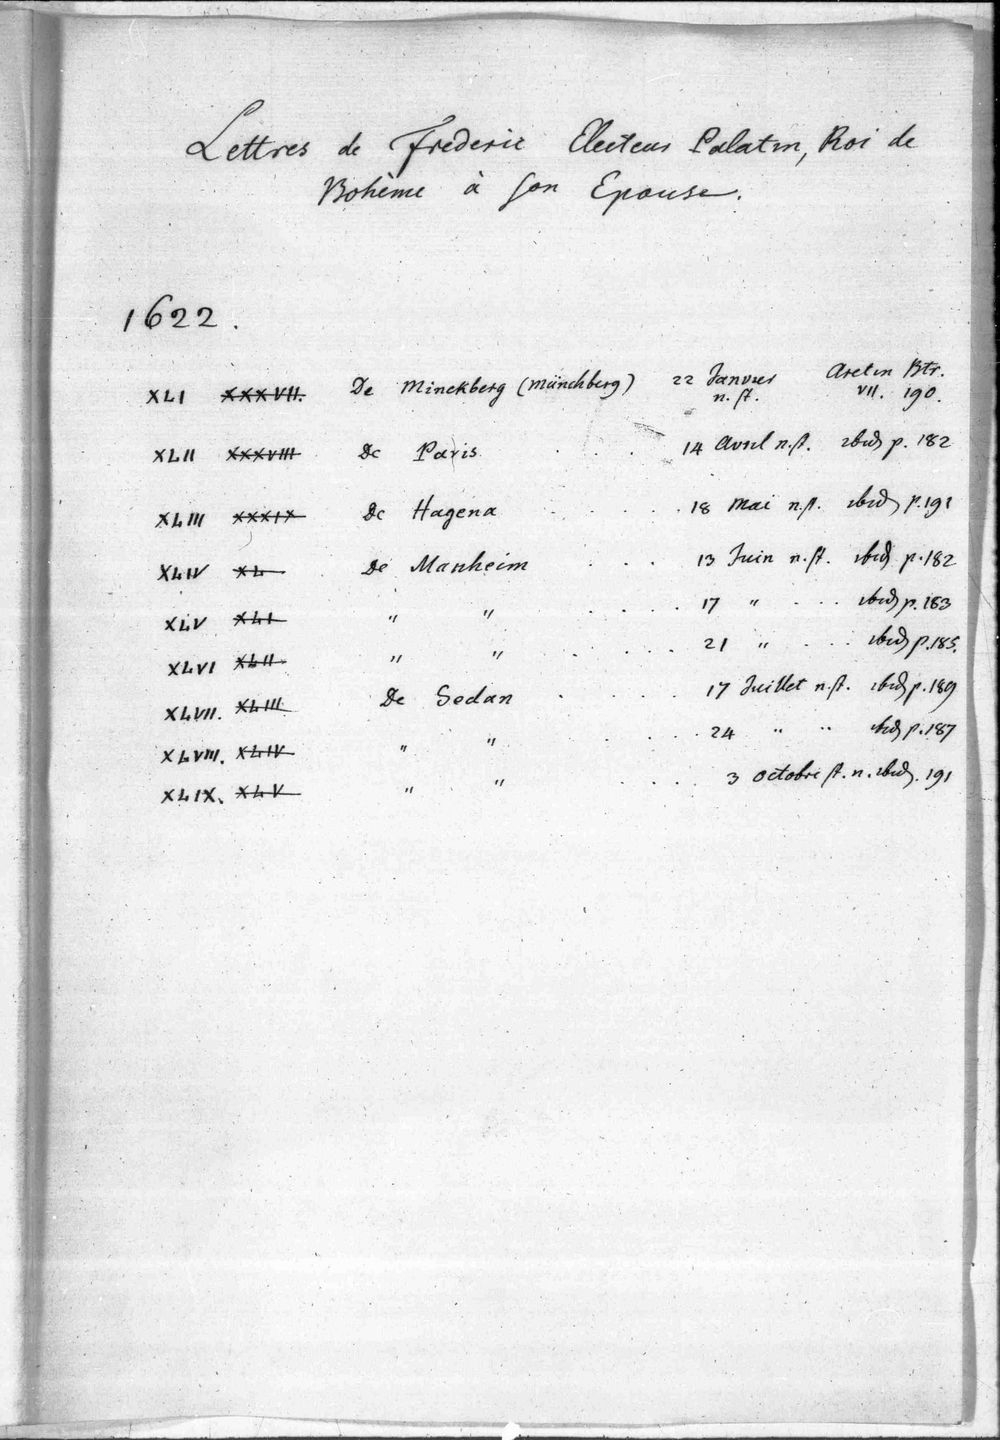 Lettres de Frederic Electeur Palatin, Roi de
Bohème à son Epouse.
1622.
XLI XXXVII. De Minekberg (Münchberg) 22 Janvier n. st. Aretin Btr. VII. 190.
XLII XXXVIII De Paris . . . . 14 Avril n. st. ibid p. 182
XLIII XXXIX De Hagena . . . . . 18 Mai n. st. ibid p. 191
XLIV XL De Manheim . . . 13 Juin n. st. ibid p. 182
XLV XLI " " . . . . 17 " . . . ibid p. 183
XLVI XLII " " . . . . 21 " . . . ibid p. 185.
XLVII. XLIII De Sedan . . . . 17 Juillet n. st. ibid p. 189
XLVIII. XLIV " " . . . . 24 " " ibid p. 187
XLIX. XLV " " . . . . 3 octobre st. n. ibid. 191